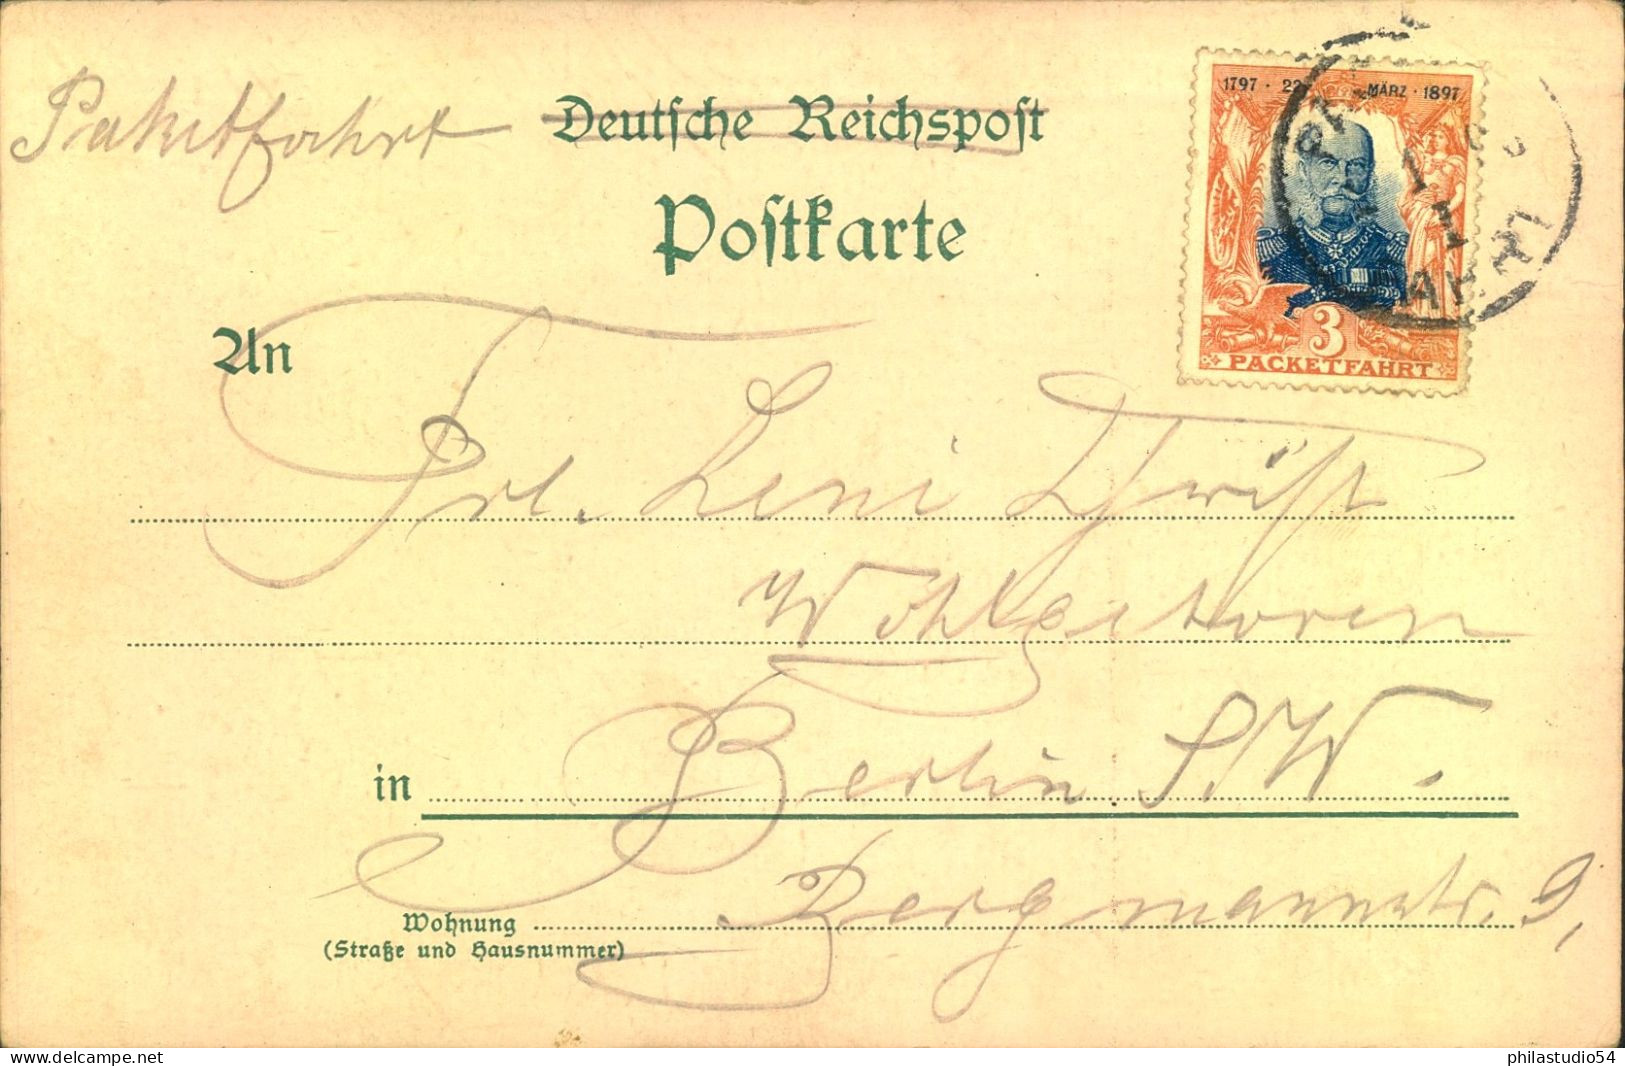 Paketfahrt
Deutsche Reichspost
Postkarte
1797 · 22 MÄRZ · 1897
3
PACKETFAHRT
An
Frl. Leni
Wohlgeboren
in Berlin S.W.
Bergmannstr. 9,
Wohnung
(Straße und Hausnummer)
www.delcampe.net
philastudio54